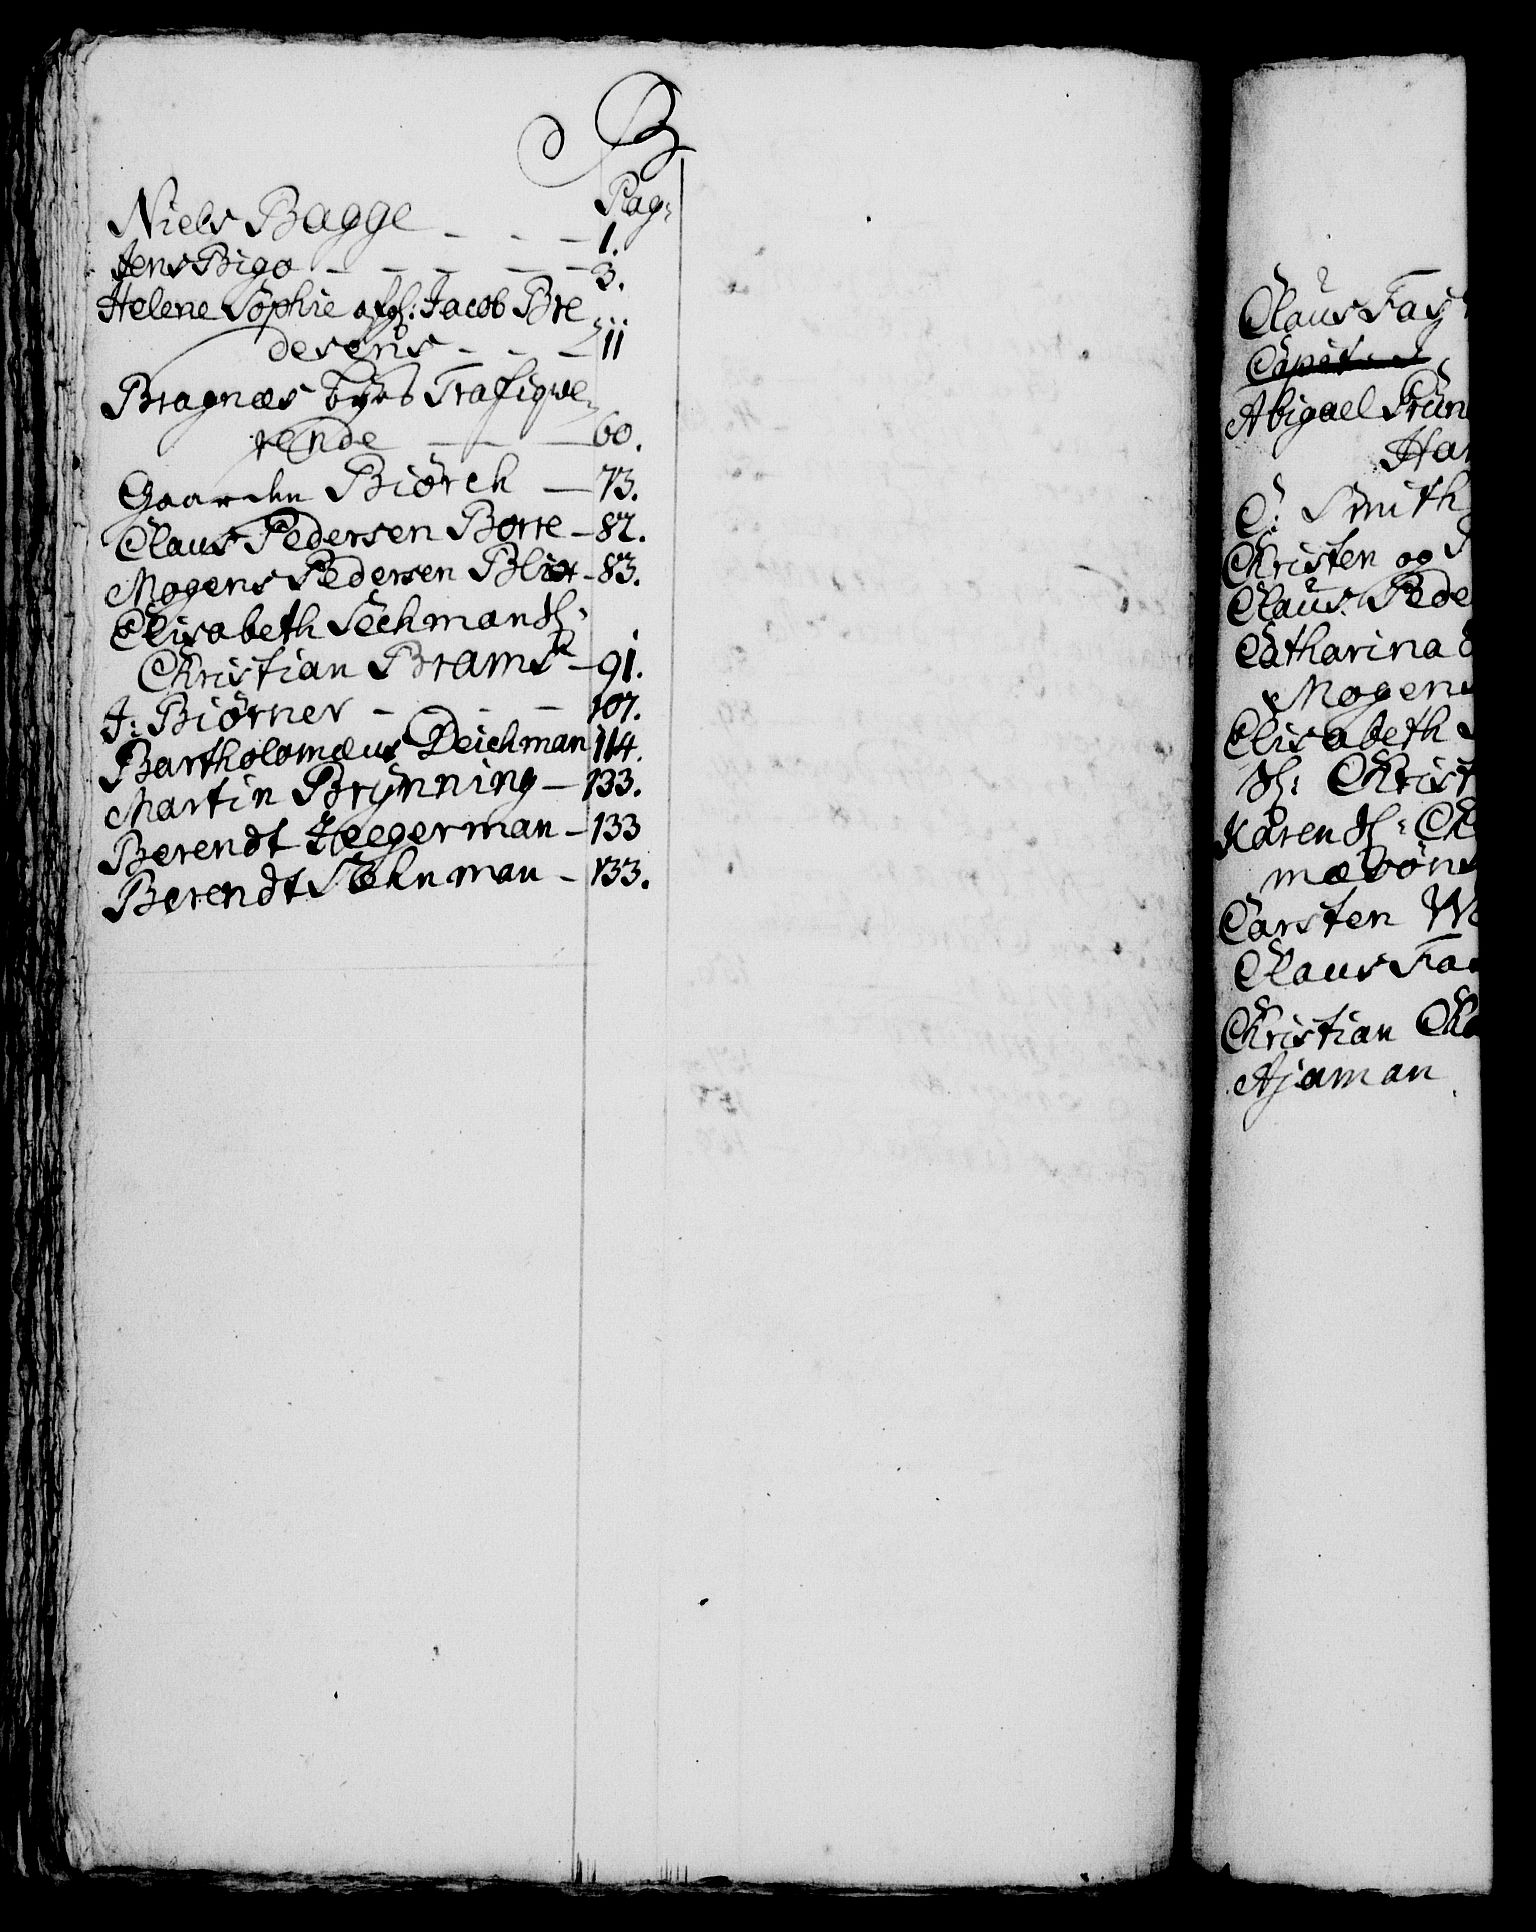 B
Pag:
Niels Bagge - - - 1.
Jens Bigo - - - - - 3.
Helene Sophie afg: Jacob Bre
desens - - - 11
Bragnæs byes Trafique
rende - - - 60.
Gaarden Biörch - 73.
Claus Pedersen Borre - 82.
Mogens Pedersen Blix - 83.
Elisabeth Sechman Sl:
Christian Brams - 91.
J: Biörner - - - 107.
Bartholomæus Deichman 114.
Martin Brynning - 133.
Berendt Heegerman - 133
Berendt - 133.
Claus Fas
Abigael
Han
C: Smith
Christen og
Claus Pede
Catharina
Mogens
Elisabeth
Sl: Christ
Karen Sl: Ch
Carsten W
Claus Fa
Christian Ch
Ajaman